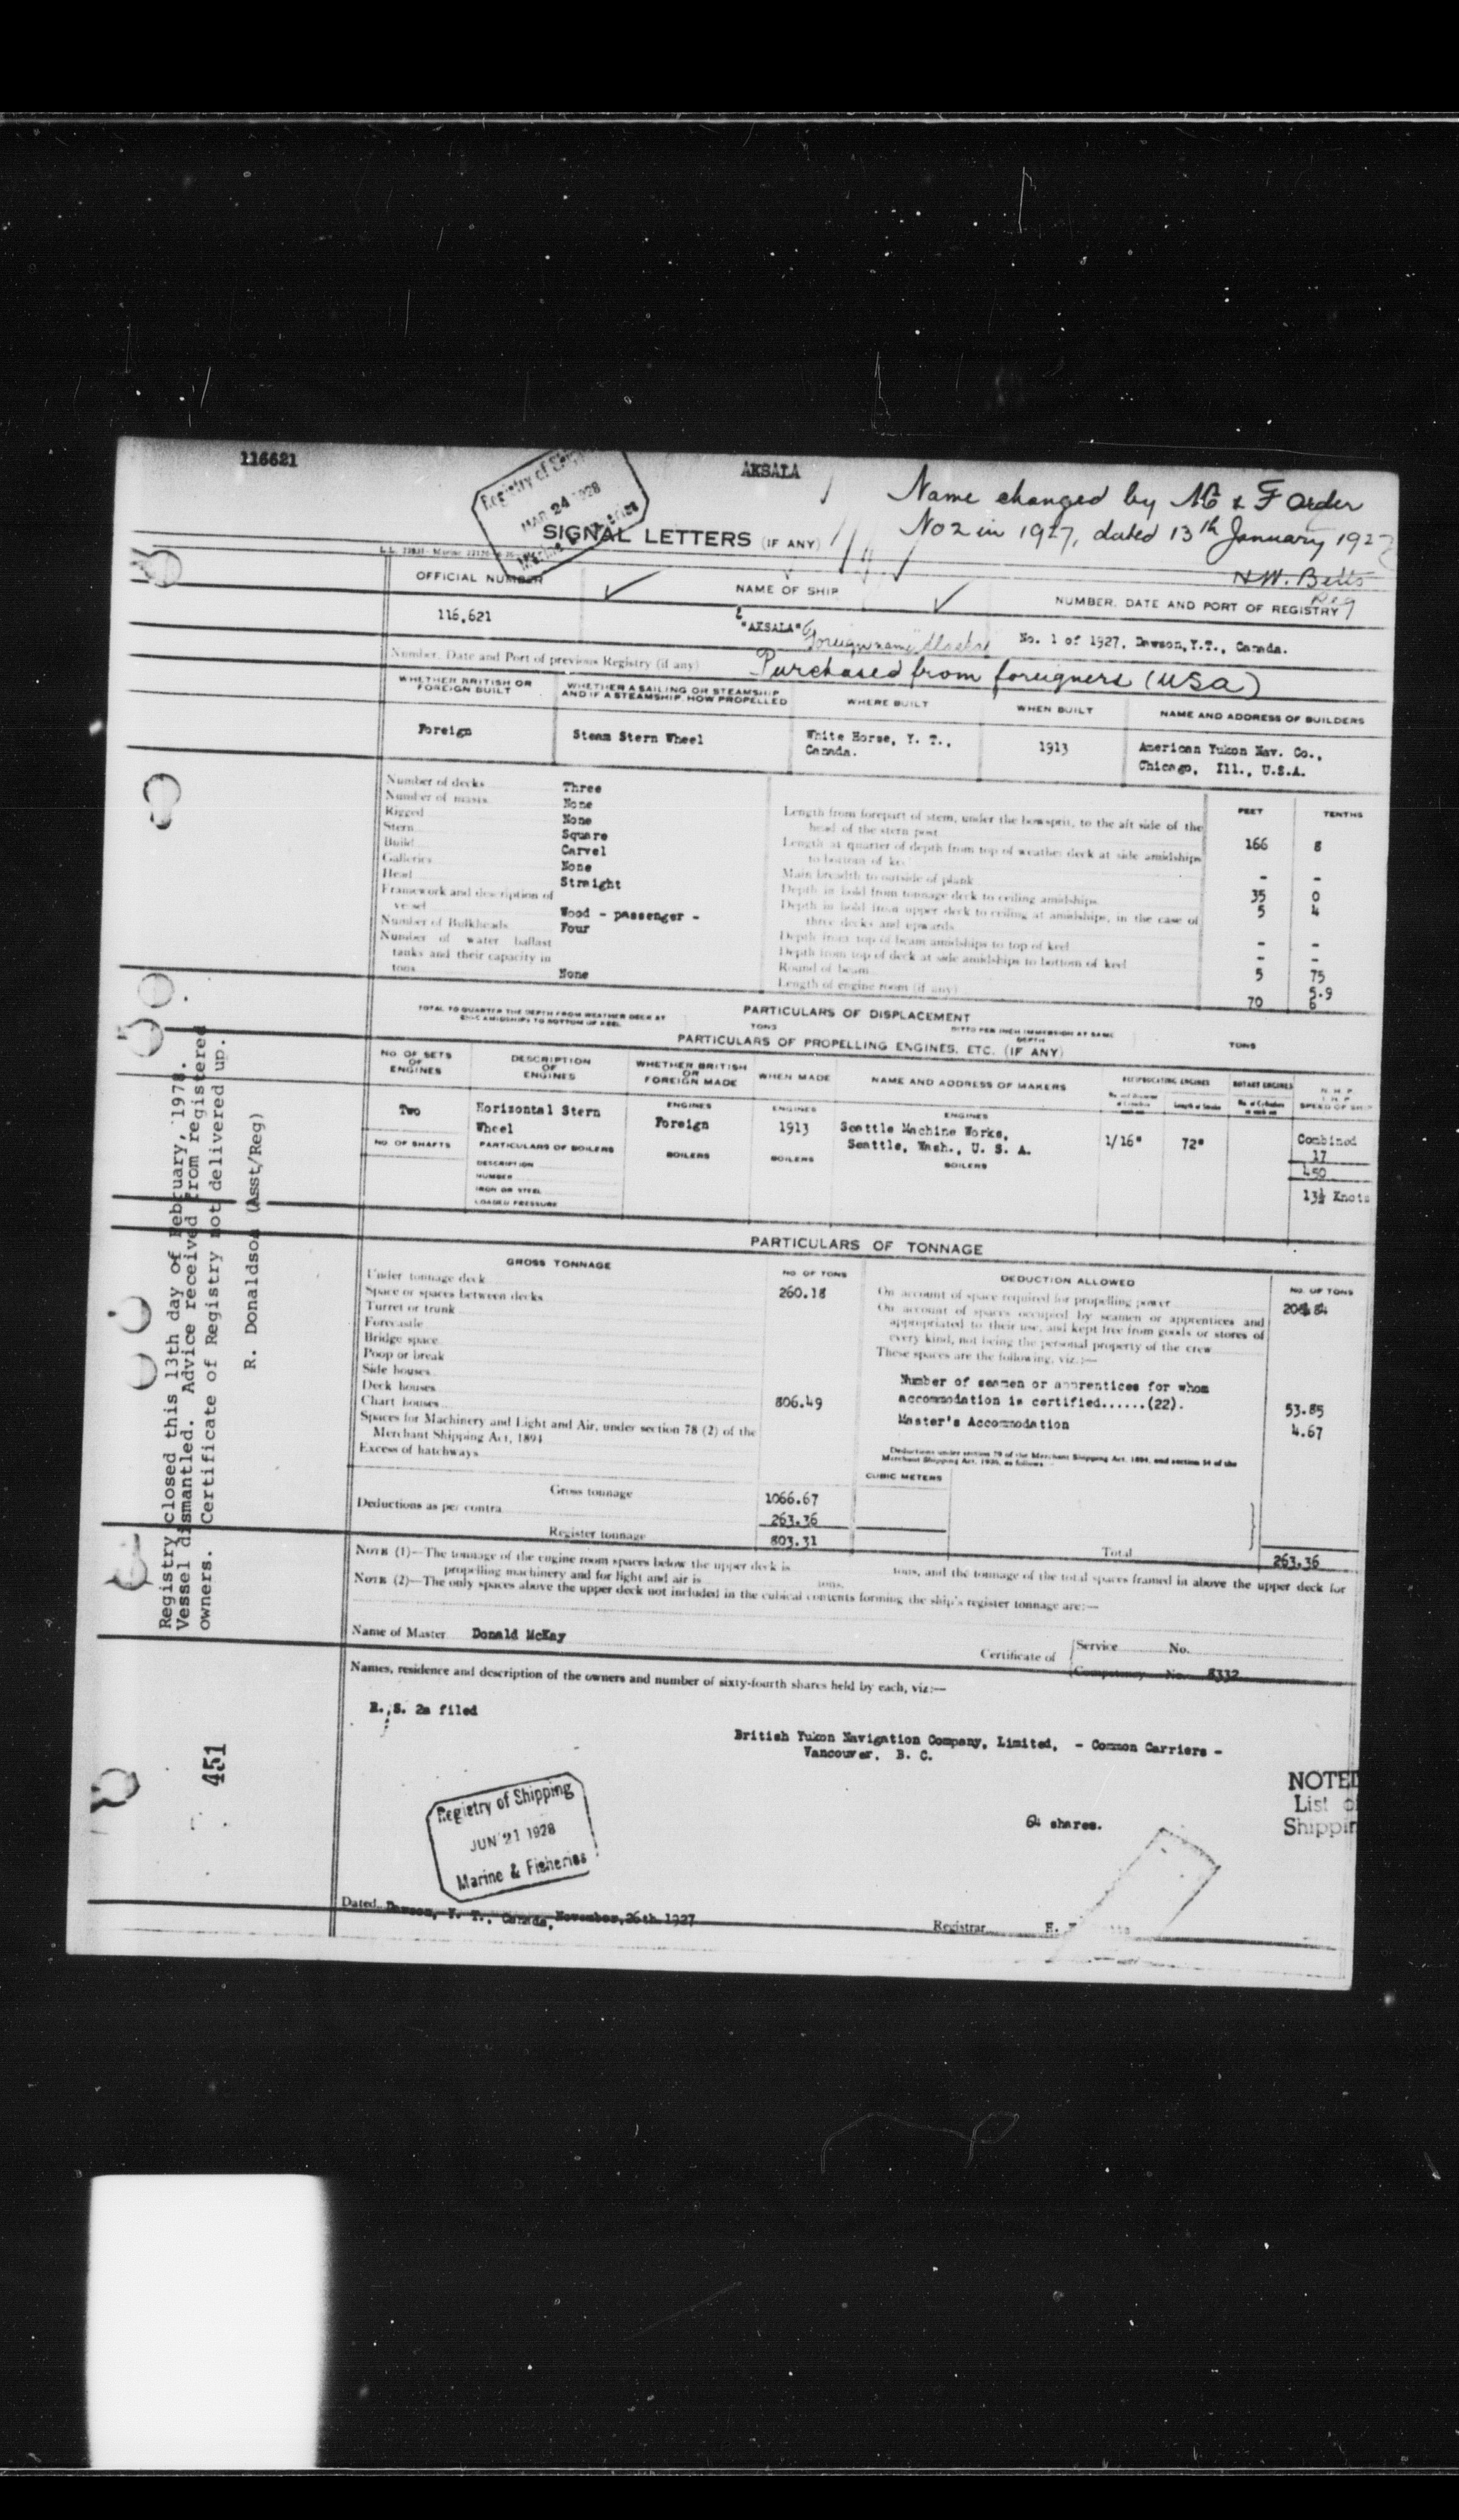 116621
AKSALA
Registry of Shipping
MAR 24 1928
Marine & Fisheries
Name changed by M & F Order
No 2 in 1927, dated 13th January 1927
H.W. Betts
Reg
SIGNAL LETTERS (IF ANY)
OFFICIAL NUMBER
NAME OF SHIP
NUMBER, DATE AND PORT OF REGISTRY
116,621
"AKSALA"
Foreign name Alaska
No. 1 of 1927, Dawson, Y.T., Canada.
Number, Date and Port of previous Registry (if any)
Purchased from foreigners (USA)
WHETHER BRITISH OR FOREIGN BUILT
WHETHER A SAILING OR STEAMSHIP AND IF A STEAMSHIP HOW PROPELLED
WHERE BUILT
WHEN BUILT
NAME AND ADDRESS OF BUILDERS
Foreign
Steam Stern Wheel
White Horse, Y. T.,
Canada.
1913
American Yukon Nav. Co.,
Chicago, Ill., U.S.A.
Number of decks Three
Number of masts None
Rigged None
Stern Square
Build Carvel
Galleries None
Head Straight
Framework and description of
vessel Wood - passenger -
Number of Bulkheads Four
Number of water ballast
tanks and their capacity in
tons None
FEET TENTHS
Length from forepart of stem, under the bowsprit, to the aft side of the
head of the stern post 166 8
Length at quarter of depth from top of weather deck at side amidships
to bottom of keel - -
Main breadth to outside of plank 35 0
Depth in hold from tonnage deck to ceiling amidships 5 4
Depth in hold from upper deck to ceiling at amidships, in the case of
three decks and upwards - -
Depth from top of beam amidships to top of keel - -
Depth from top of deck at side amidships to bottom of keel 5 75
Round of beam 5.9
Length of engine room (if any) 70 6
PARTICULARS OF DISPLACEMENT
TOTAL TO QUARTER THE DEPTH FROM WEATHER DECK AT
SIDE AMIDSHIPS TO BOTTOM OF KEEL
TONS
DITTO PER INCH IMMERSION AT SAME
DEPTH
TONS
PARTICULARS OF PROPELLING ENGINES, ETC. (IF ANY)
NO OF SETS OF ENGINES
DESCRIPTION OF ENGINES
WHETHER BRITISH OR FOREIGN MADE
WHEN MADE
NAME AND ADDRESS OF MAKERS
RECIPROCATING ENGINES
ROTARY ENGINES
N H P
I H P
SPEED OF SHIP
Length of Stroke
Two
Horizontal Stern
Wheel
ENGINES
Foreign
ENGINES
1913
ENGINES
Seattle Machine Works,
Seattle, Wash., U. S. A.
1/16"
72"
Combined
17
450
13½ Knots
NO. OF SHAFTS
PARTICULARS OF BOILERS
BOILERS
BOILERS
BOILERS
DESCRIPTION
NUMBER
IRON OR STEEL
LOADED PRESSURE
PARTICULARS OF TONNAGE
GROSS TONNAGE
NO OF TONS
DEDUCTION ALLOWED
NO. OF TONS
Under tonnage deck 260.18
Space or spaces between decks
Turret or trunk
Forecastle
Bridge space
Poop or break
Side houses
Deck houses 806.49
Chart houses
Spaces for Machinery and Light and Air, under section 78 (2) of the
Merchant Shipping Act, 1894
Excess of hatchways
On account of space required for propelling power
On account of spaces occupied by seamen or apprentices and
appropriated to their use, and kept free from goods or stores of
every kind, not being the personal property of the crew
These spaces are the following, viz.:—
Number of seamen or apprentices for whom
accommodation is certified......(22). 53.85
Master's Accommodation 4.67
CUBIC METERS
Gross tonnage 1066.67
Deductions as per contra 263.36
Register tonnage 803.31
Total 263.36
NOTE (1)—The tonnage of the engine room spaces below the upper deck is tons, and the tonnage of the total spaces framed in above the upper deck for
propelling machinery and for light and air is tons.
NOTE (2)—The only spaces above the upper deck not included in the cubical contents forming the ship's register tonnage are:—
Name of Master Donald McKay
Certificate of
Service No.
Competency No. 8332
Names, residence and description of the owners and number of sixty-fourth shares held by each, viz:—
R. S. 2a filed
British Yukon Navigation Company, Limited, - Common Carriers -
Vancouver, B. C.
64 shares.
NOTED
List of
Shipping
Registry of Shipping
JUN 21 1928
Marine & Fisheries
Dated Dawson, Y. T., Canada, November, 26th 1927
Registrar
Registry closed this 13th day of February, 1978.
Vessel dismantled. Advice received from registered
owners. Certificate of Registry not delivered up.
R. Donaldson (Asst/Reg)
451